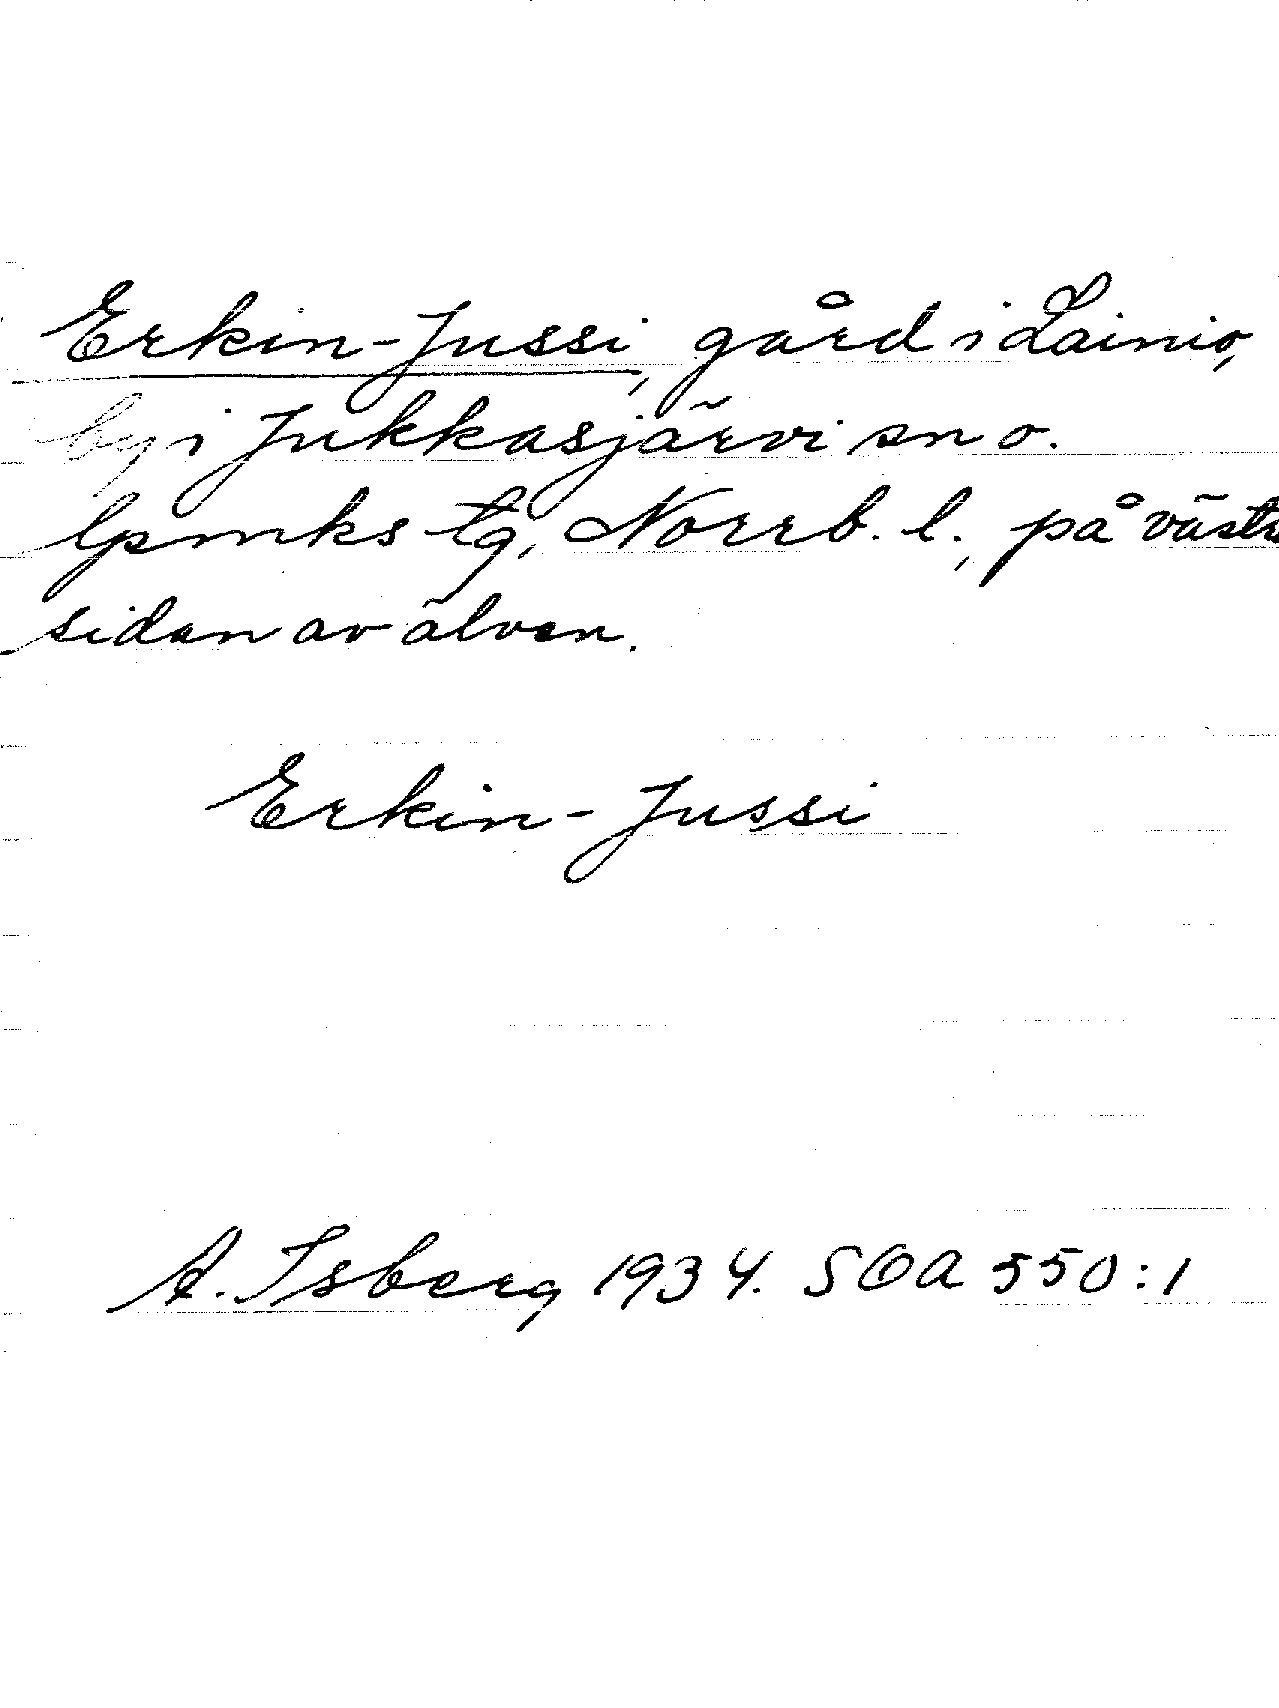 Erkin-Jussi, gård i Lainio,
by i Jukkasjärvi sn o.
lpmks tg, Norrb. l., på västra
sidan av älven.
Erkin-Jussi
A. Isberg 1934. SOA 550:1